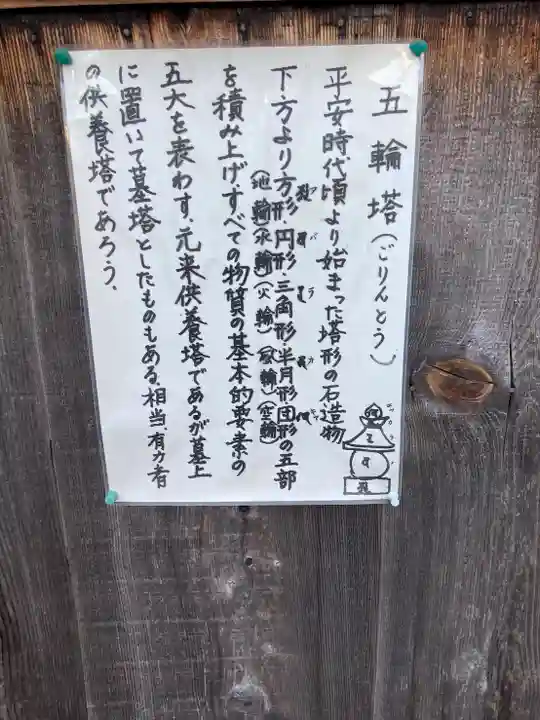 五輪塔(ごりんとう)
平安時代頃より始まった塔形の石造物
下方より方形、円形、三角形、半月形、団形の五部
ア バ ラ カ キャ
(地輪)(水輪)(火輪)(風輪)(空輪)
を積み上げ、すべての物質の基本的要素の
五大を表わす。元来供養塔であるが墓上
に置いて墓塔としたものもある。相当、有力者
の供養塔であろう。